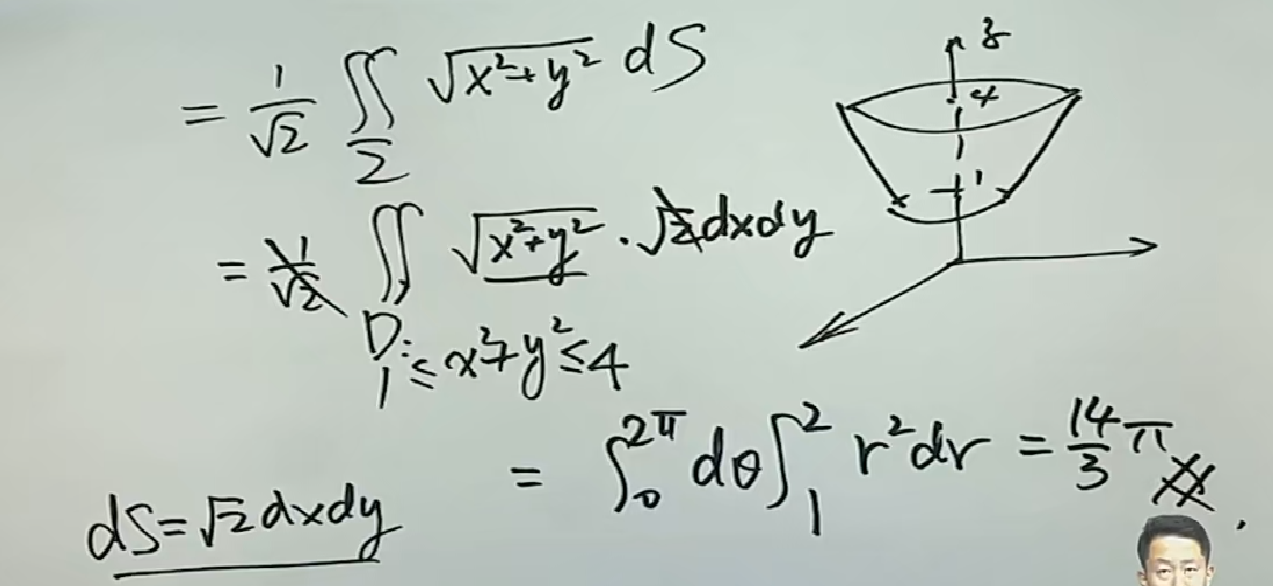 = 1/√2 ∬_Σ √(x²+y²) dS
z
4
1
= 1/√2 ∬ √(x²+y²) · √2 dxdy
D: 1 ≤ x²+y² ≤ 4
= ∫₀^{2π} dθ ∫₁² r² dr = 14/3 π
dS = √2 dxdy